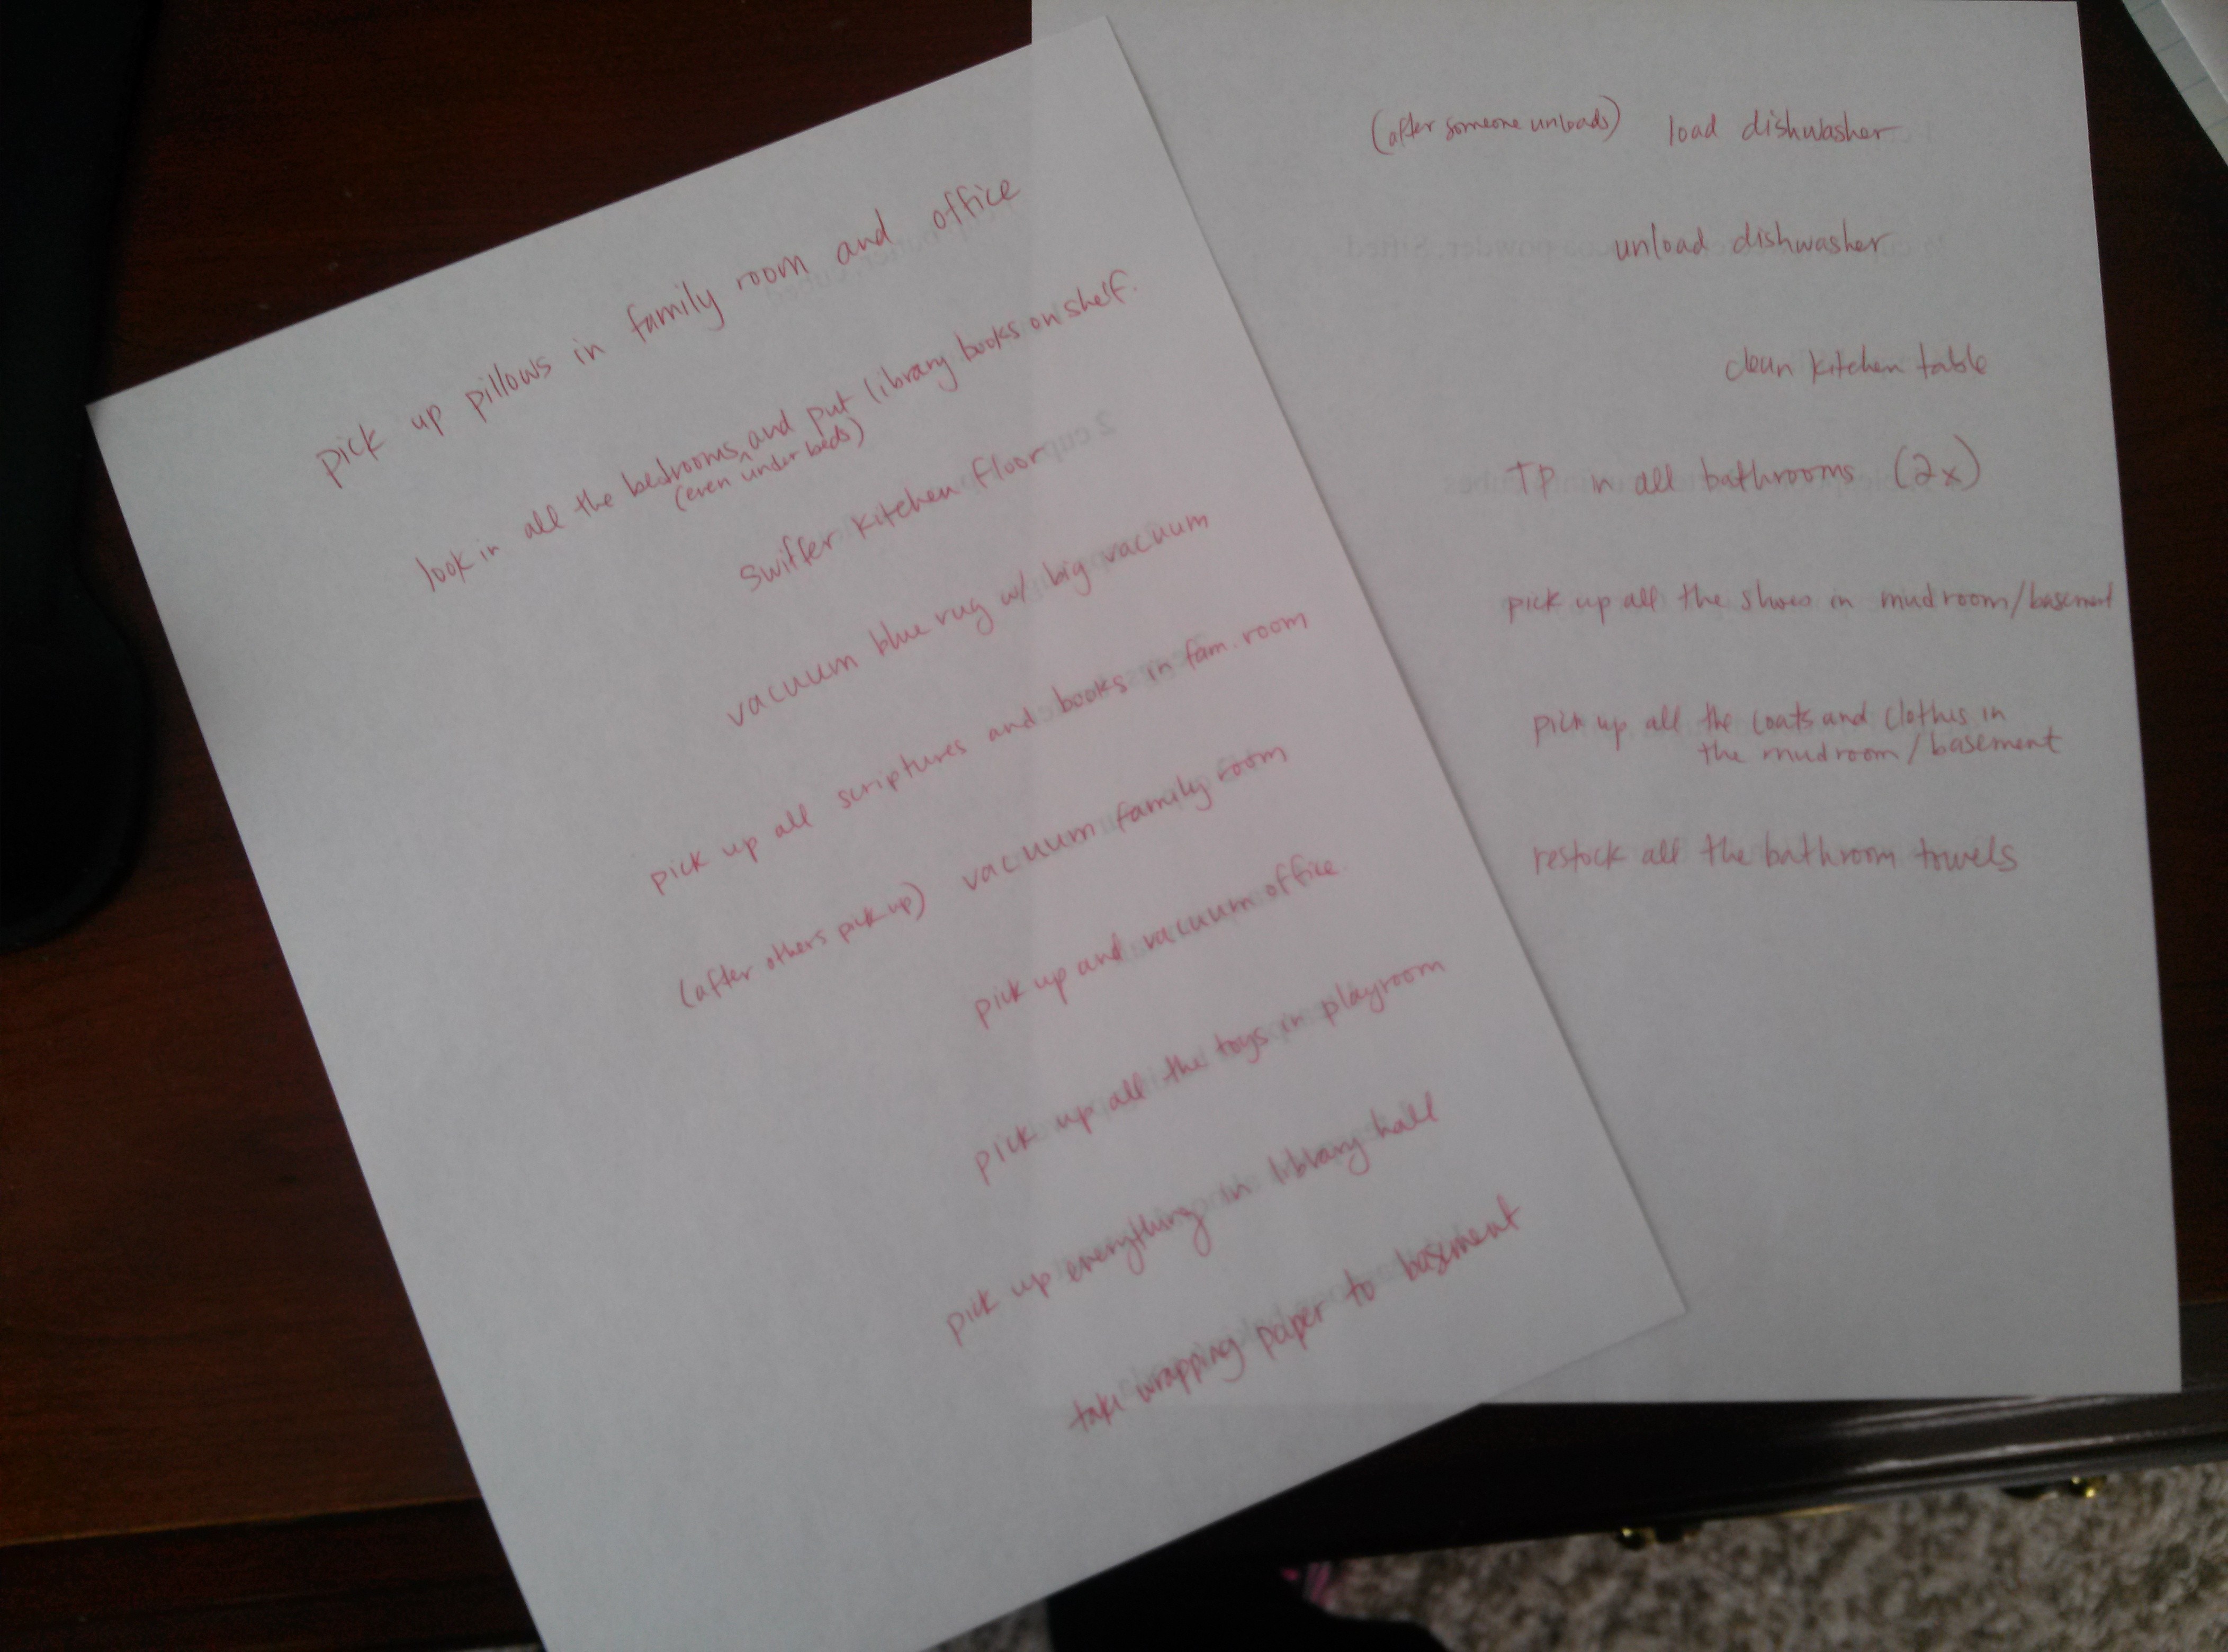 pick up pillows in family room and office
look in all the bedrooms and put library books on shelf.
(even under beds)
swiffer kitchen floor
vacuum blue rug w/ big vacuum
pick up all scriptures and books in fam. room
(after others pick up) vacuum family room
pick up and vacuum office
pick up all the toys in playroom
pick up everything in library hall
take wrapping paper to basement
(after someone unloads) load dishwasher
unload dishwasher
clean kitchen table
TP in all bathrooms (2x)
pick up all the shoes in mudroom/basement
pick up all the coats and clothes in
the mudroom/basement
restock all the bathroom towels